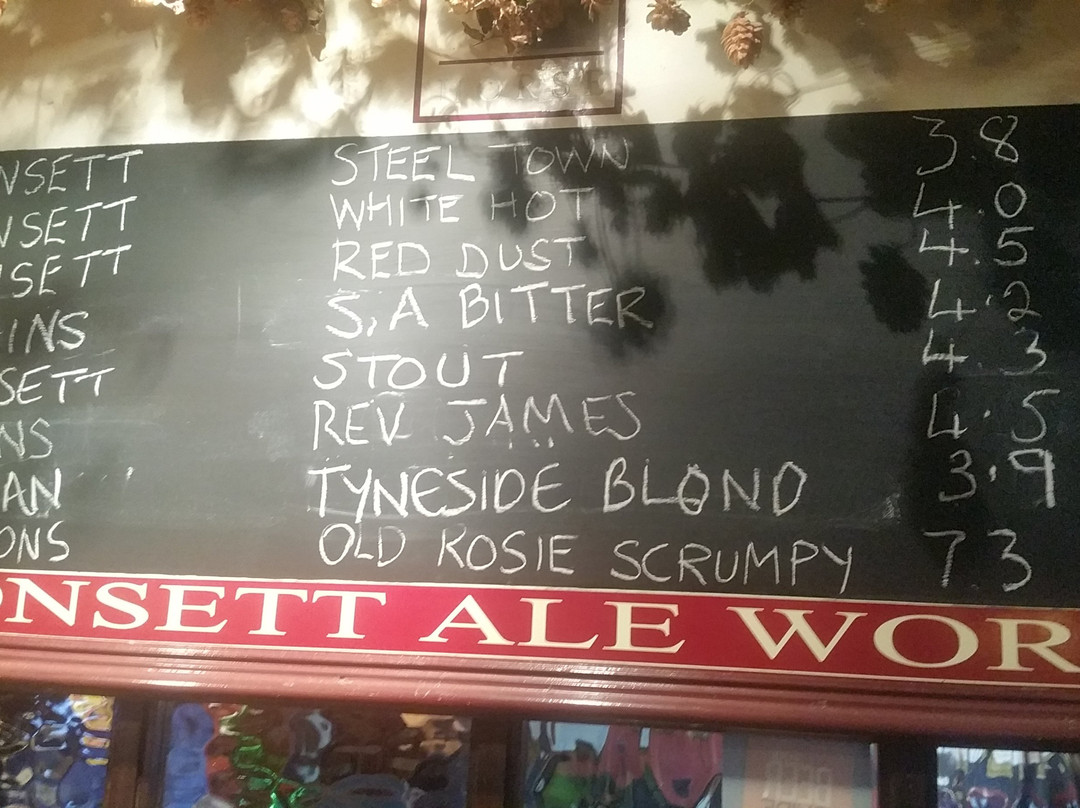 NSETT STEEL TOWN 3.8
NSETT WHITE HOT 4.0
SETT RED DUST 4.5
INS S.A BITTER 4.2
SETT STOUT 4.3
NS REV JAMES 4.5
AN TYNESIDE BLOND 3.9
ONS OLD ROSIE SCRUMPY 7.3
ONSETT ALE WOR